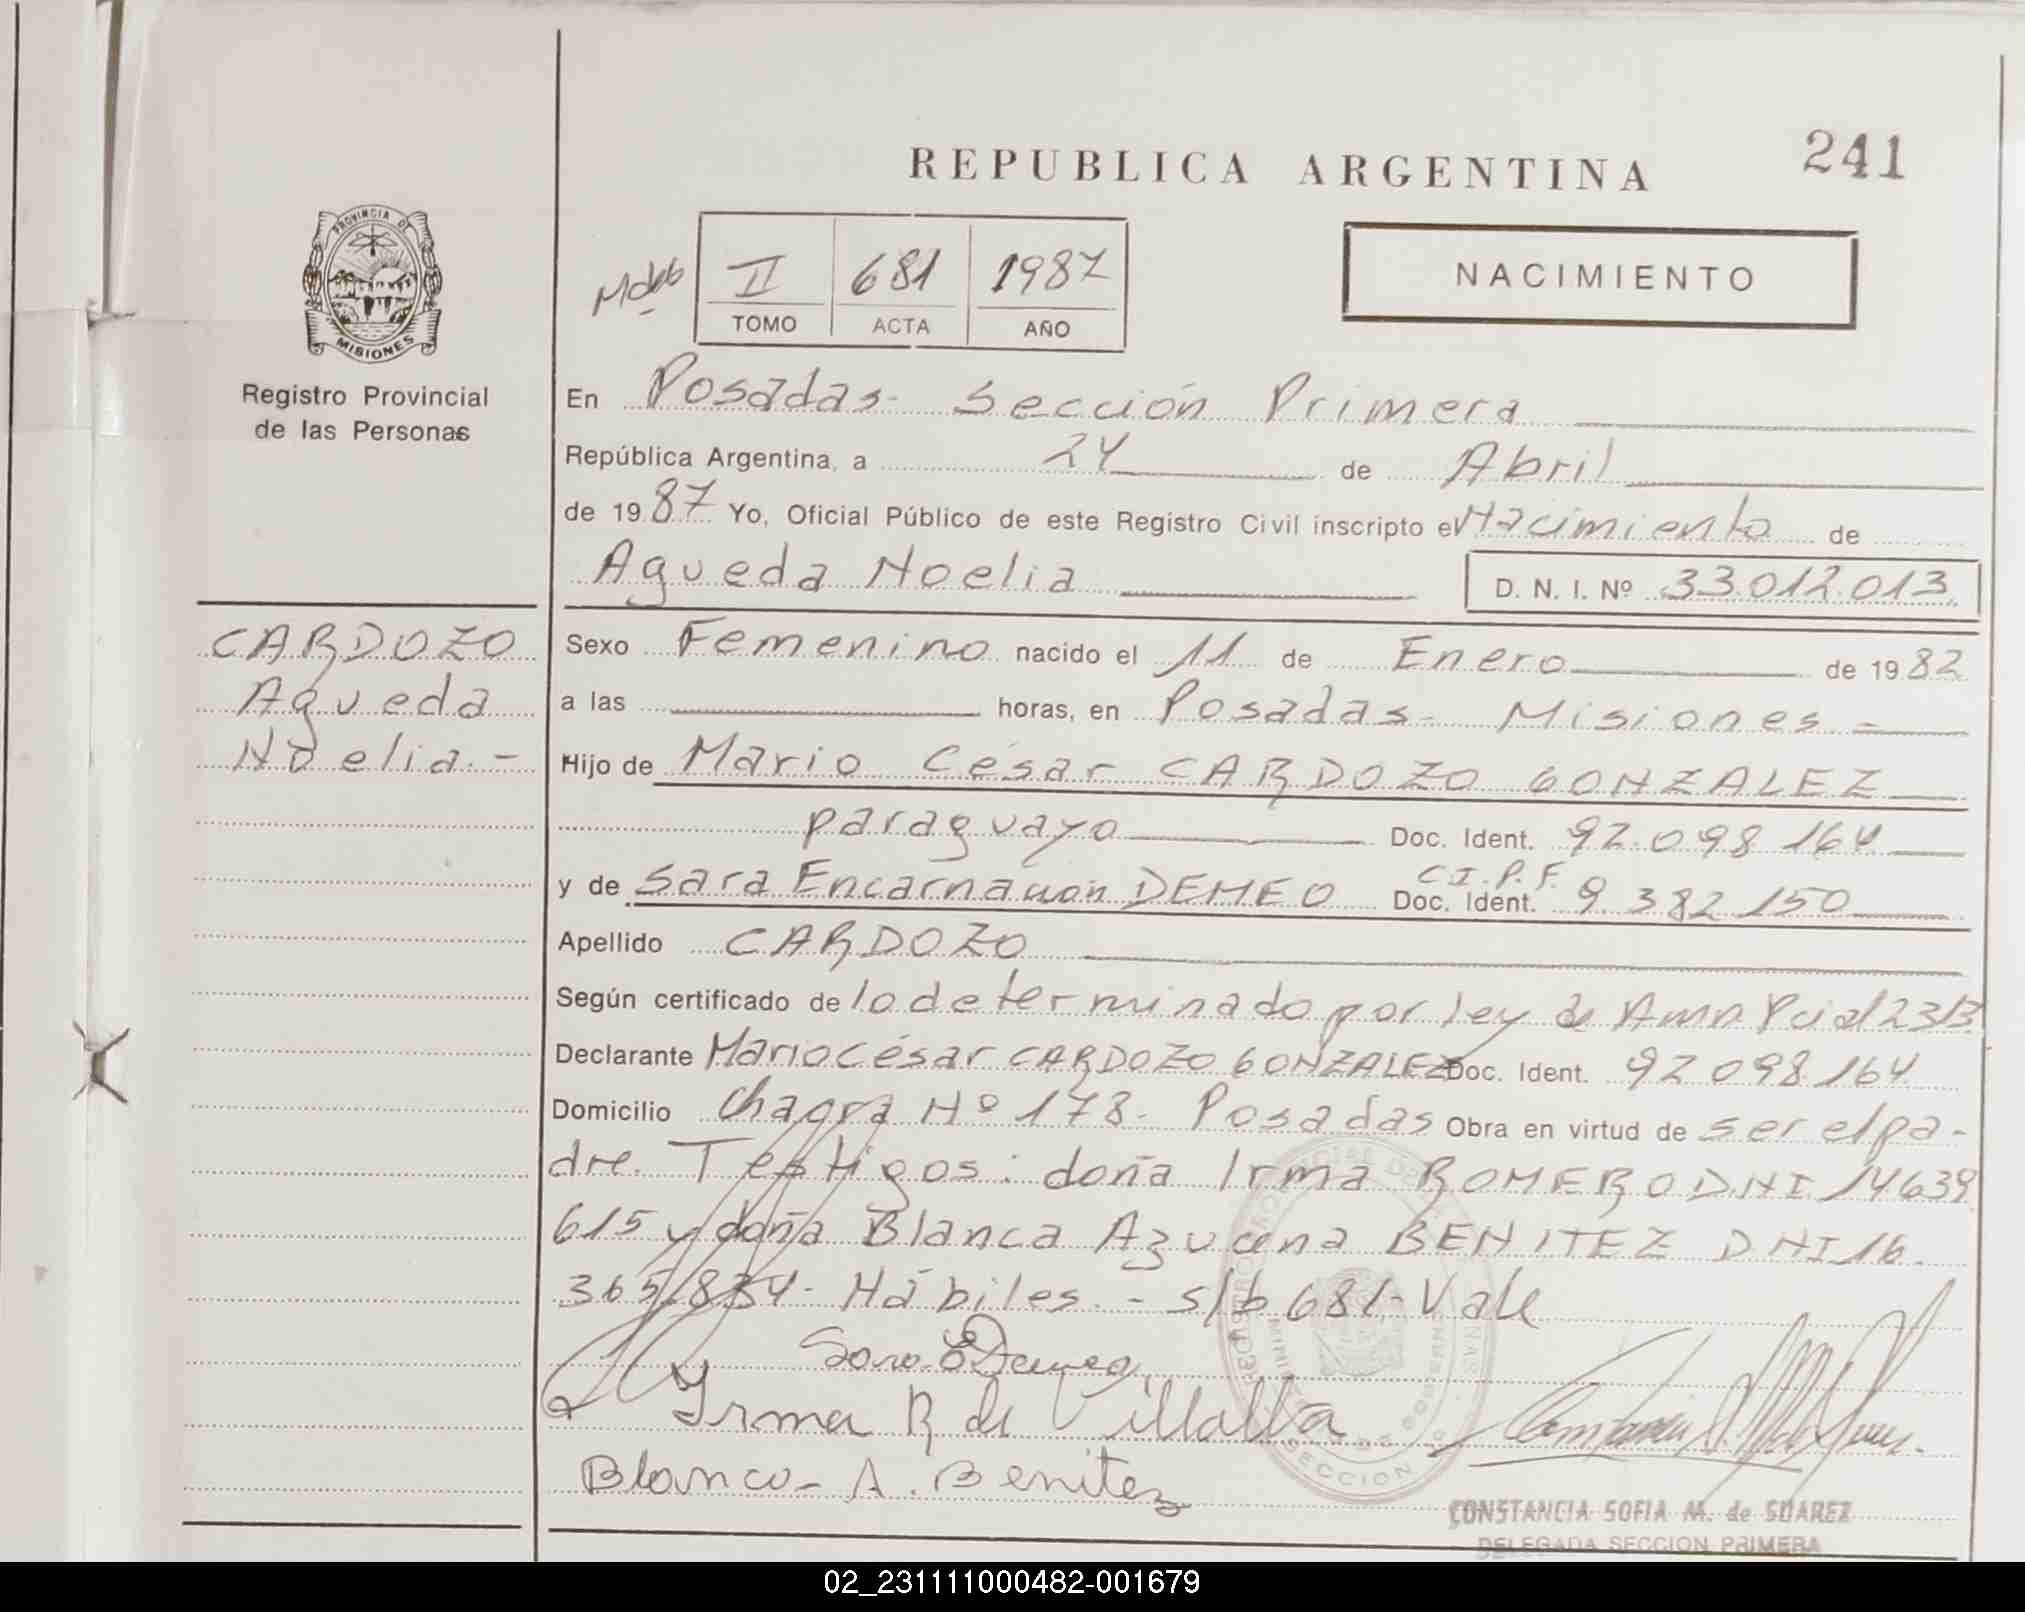 REPUBLICA ARGENTINA
241
NACIMIENTO
II 681 1987
TOMO ACTA AÑO
PROVINCIA DE
MISIONES
Registro Provincial
de las Personas
En Posadas - Sección Primera
República Argentina, a 24 de Abril
de 1987 Yo, Oficial Público de este Registro Civil inscripto el Nacimiento de
Agueda Noelia D. N. I. Nº 33.012.013
CARDOZO
Agueda
Noelia.-
Sexo Femenino nacido el 11 de Enero de 1982
a las horas, en Posadas - Misiones -
Hijo de Mario César CARDOZO GONZALEZ
paraguayo Doc. Ident. 92.098 164
C.I.P.F.
y de Sara Encarnación DEMEO Doc. Ident. 9 382 150
Apellido CARDOZO
Según certificado de lo determinado por ley de Amn Pcial 2313
Declarante Mario César CARDOZO GONZALEZ Doc. Ident. 92 098 164
Domicilio Chagra Nº 178- Posadas Obra en virtud de ser el pa-
dre. Testigos: doña Irma ROMERO DNI 14639
615 y doña Blanca Azucena BENITEZ DNI 16.
365.834- Hábiles.- s/b 681- Vale
Irma R de Villalba
Blanca A. Benitez
CONSTANCIA SOFIA M. de SUAREZ
DELEGADA SECCION PRIMERA
02_231111000482-001679